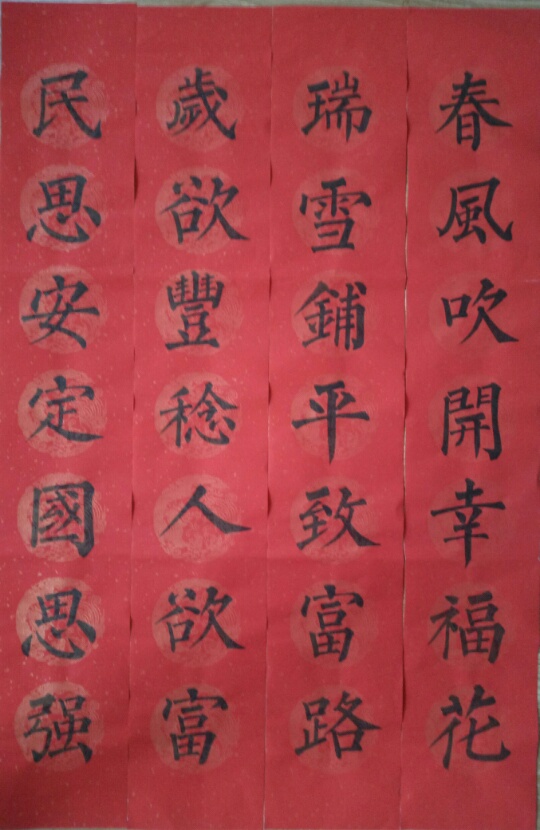 春風吹開幸福花
瑞雪鋪平致富路
歲欲豐稔人欲富
民思安定國思强